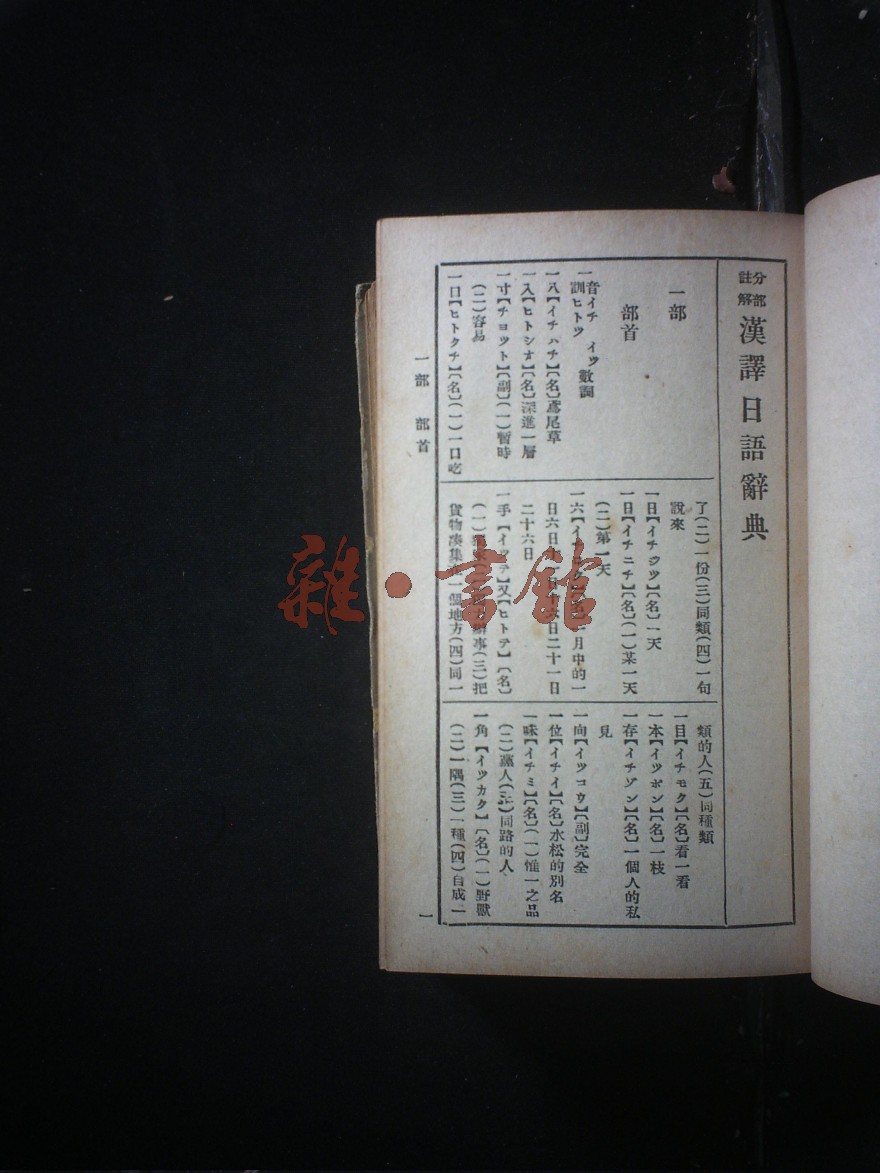 分部
註解
漢譯日語辭典
一部
部首
一音イチ イツ數詞
訓ヒトツ
一八【イチハチ】〔名〕鳶尾草
一入【ヒトシオ】〔名〕深進一層
一寸【チヨツト】〔副〕(一)暫時
(二)容易
一口【ヒトクチ】〔名〕(一)一口吃
了(二)一份(三)同類(四)一句
說來
一日【イチジツ】〔名〕一天
一日【イチニチ】〔名〕(一)某一天
(二)第一天
一六【イチ 〔名〕一月中的一
日六日 六日二十一日
二十六日
一手【イツテ】又【ヒトテ】〔名〕
(一) 辦事(三)把
貨物湊集 一個地方(四)同一
類的人(五)同種類
一目【イチモク】〔名〕看一看
一本【イツポン】〔名〕一枝
一存【イチゾン】〔名〕一個人的私
見
一向【イツコウ】〔副〕完全
一位【イチイ】〔名〕水松的別名
一味【イチミ】〔名〕(一)惟一之品
(二)黨人(三)同路的人
一角【イツカク】〔名〕(一)野獸
(二)一隅(三)一種(四)自成一
一部 部首
一
雜·書館